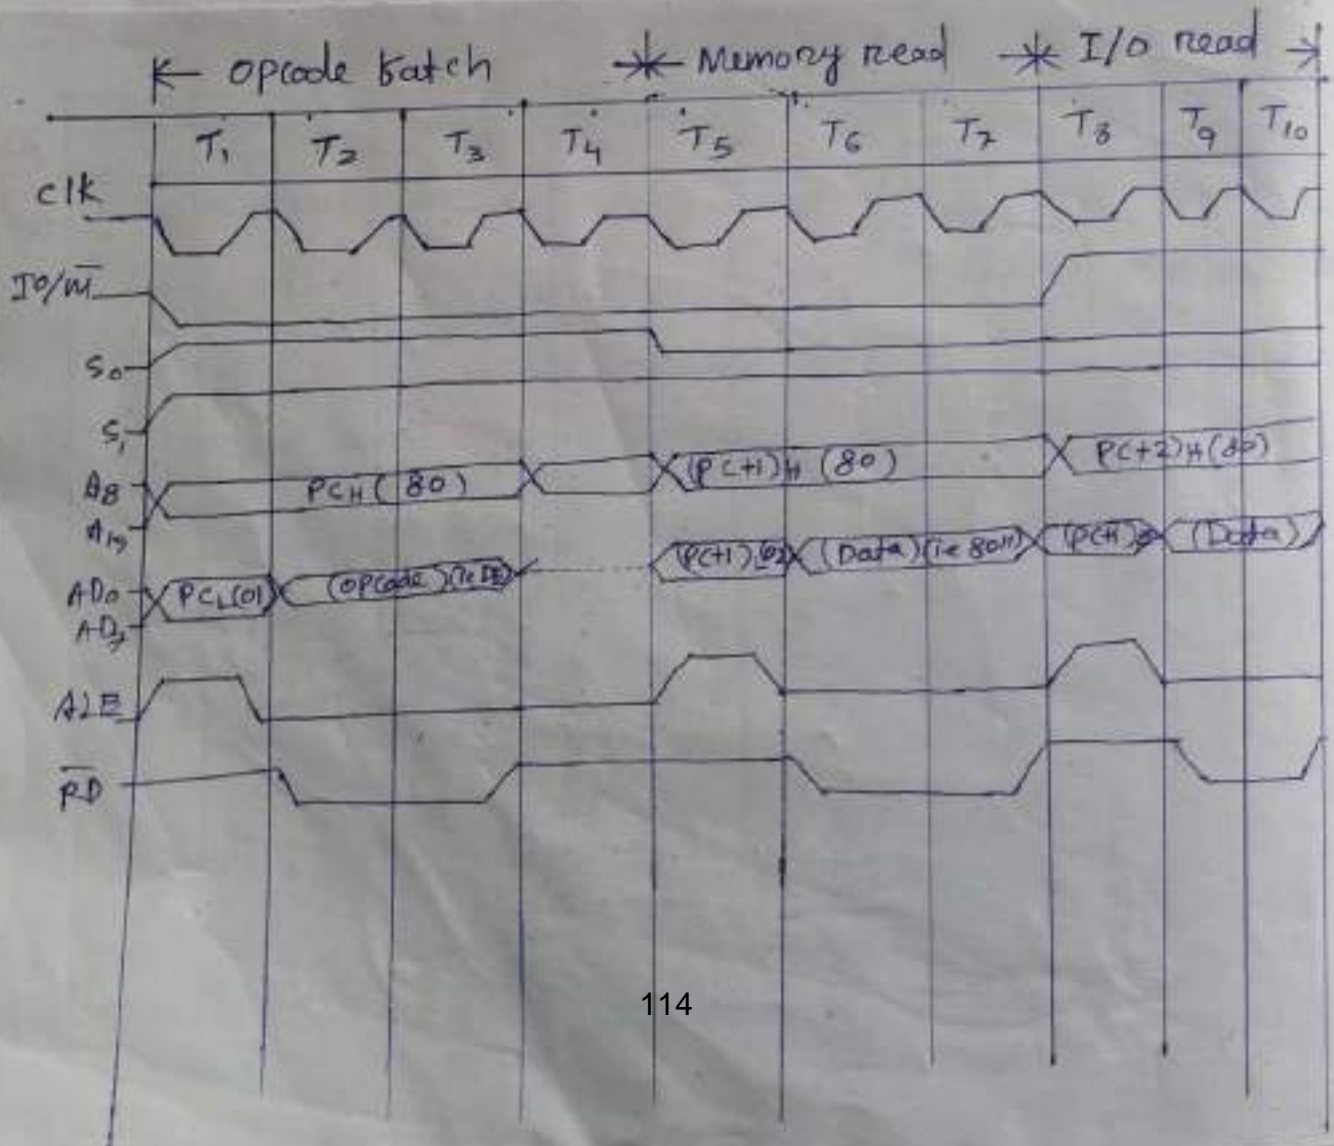 Opcode fatch Memory read I/O read
T1 T2 T3 T4 T5 T6 T7 T8 T9 T10
clk
IO/M̅
S0
S1
A8 PCH ( 80 ) (PC+1)H (80) PC+2)H(80)
A15
AD0 PCL(01 (OPcode)(ie (PC+1) (Data)(ie 80H) (PC+1) (Data)
AD7
ALE
R̅D̅
114